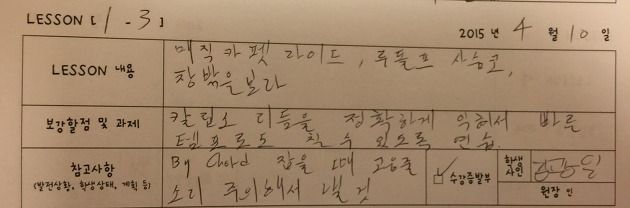 LESSON [ 1 - 3 ] 2015 년 4 월 10 일
LESSON 내용
매직 카펫 라이드, 루돌프 사슴코,
창밖을 보라
보강할점 및 과제
칼립소 리듬을 정확하게 익혀서 빠른
템포로도 칠 수 있도록 연습.
참고사항
(발전상황, 학생상태, 계획 등)
Bm Chord 잡을 때 고음줄
소리 주의해서 낼 것
수강증발부
학생
사인
원장 인